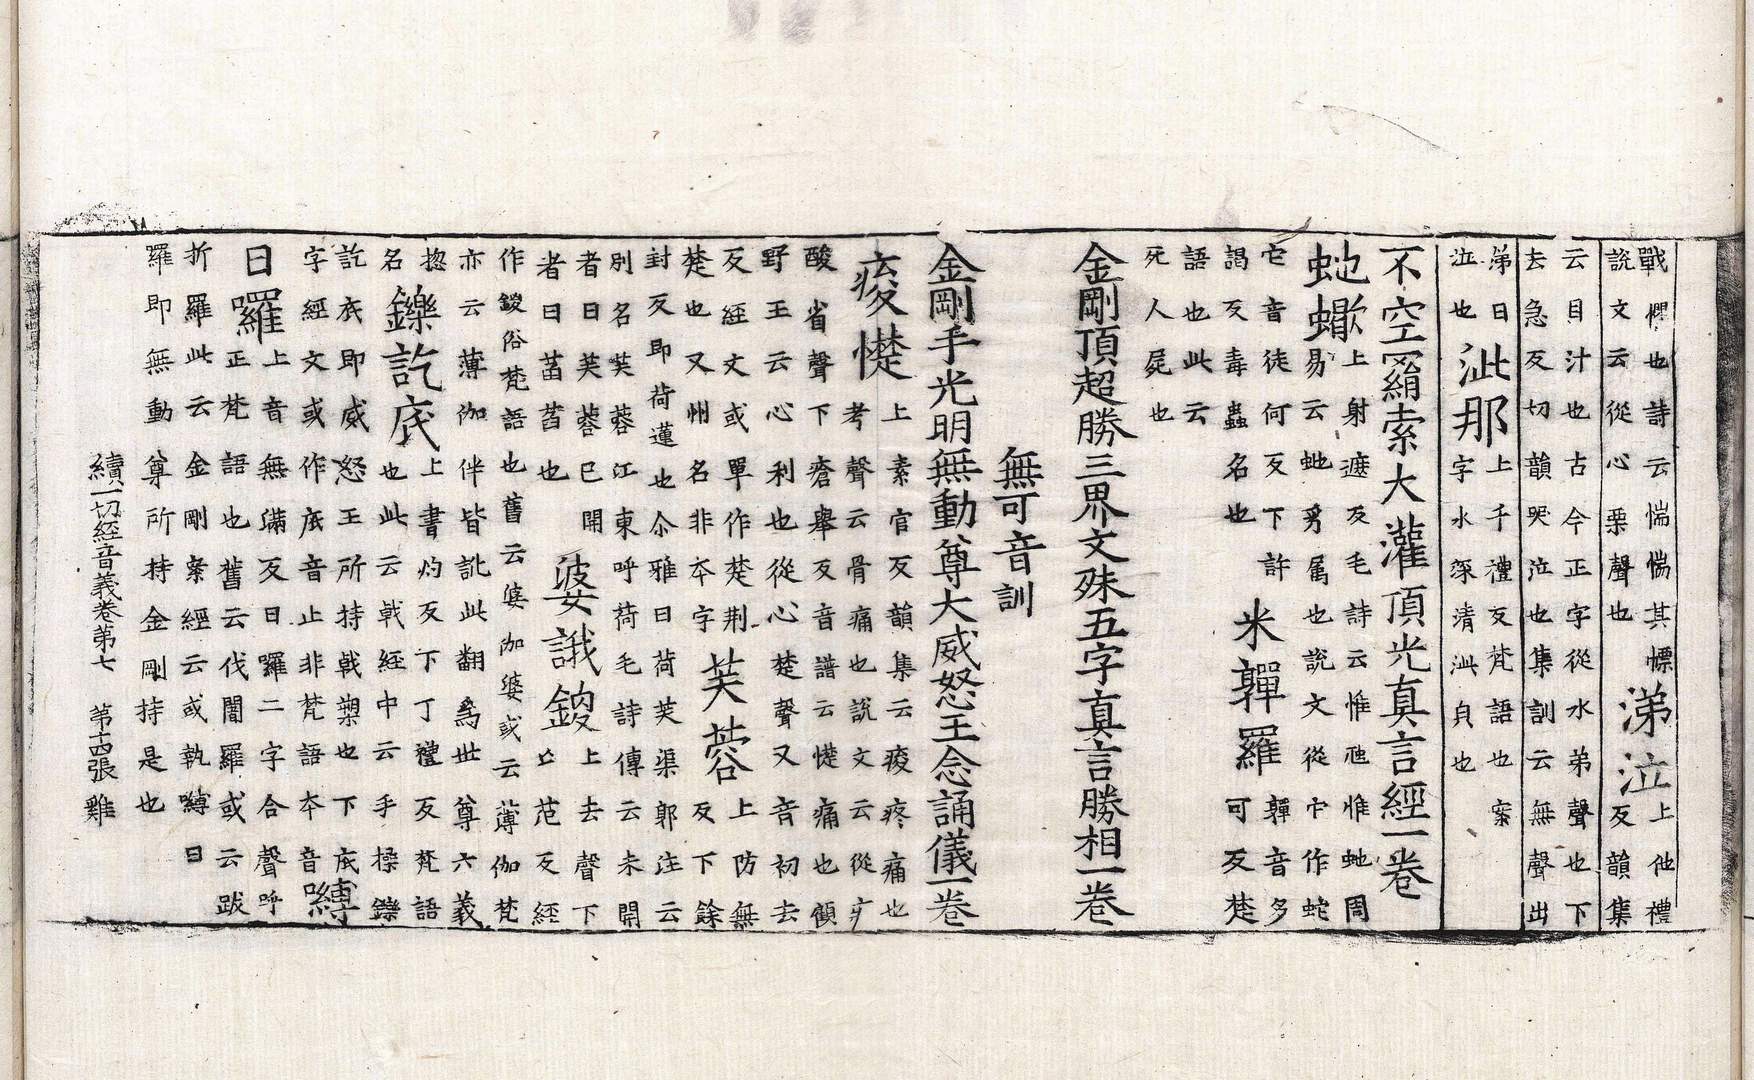 戰懼也詩云惴惴其慄
說文云從心栗聲也
涕泣
上他禮
反韻集
云目汁也古今正字從水弟聲也下
去急反切韻哭泣也集訓云無聲出
涕曰
泣也
泚那
上千禮反梵語也案
字水深清泚皃也
不空羂索大灌頂光真言經一卷
虵蠍
上射遮反毛詩云惟虺惟虵周
易云虵豸属也說文從它作蛇
它音徒何反下許
謁反毒蟲名也
米嚲羅
嚲音多
可反楚
語也此云
死人屍也
金剛頂超勝三界文殊五字真言勝相一卷
無可音訓
金剛手光明無動尊大威怒王念誦儀一卷
痠憷
上素官反韻集云痠疼痛也
考聲云骨痛也說文云從疒
酸省聲下瘡舉反音譜云憷痛也顧
野王云心利也從心楚聲又音初去
反經文或單作楚荆
楚也又州名非本字
芙蓉
上防無
反下餘
封反即荷蓮也尒雅曰荷芙渠郭注云
別名芙蓉江東呼荷毛詩傳云未開
者曰芙蓉已開
者曰菡萏也
婆誐鑁
上去聲下
亡范反經
作鍐俗梵語也舊云婆伽婆或云薄伽梵
亦云薄伽伴皆訛此翻為世尊六義
惣
名
鑠訖底
上書灼反下丁禮反梵語
也此云戟經中云手操鑠
訖底即威怒王所持戟槊也下底
字經文或作底音止非梵語本音
嚩
曰囉
上音無滿反曰囉二字合聲呼
正梵語也舊云伐闍羅或云跋
折羅此云金剛案經云或執嚩曰
羅即無動尊所持金剛持是也
續一切經音義卷第七 第十四張 雞